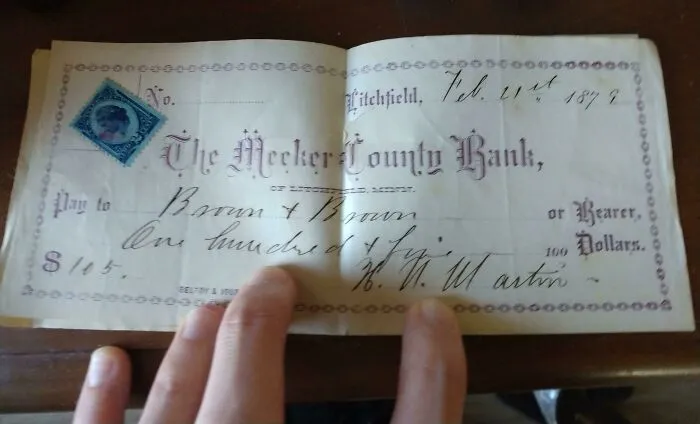 No. Litchfield, Feb. 21st 1879
The Meeker County Bank,
OF LITCHFIELD, MINN.
Pay to Brown & Brown or Bearer,
One hundred & five 100 Dollars.
$ 105. W. W. Martin